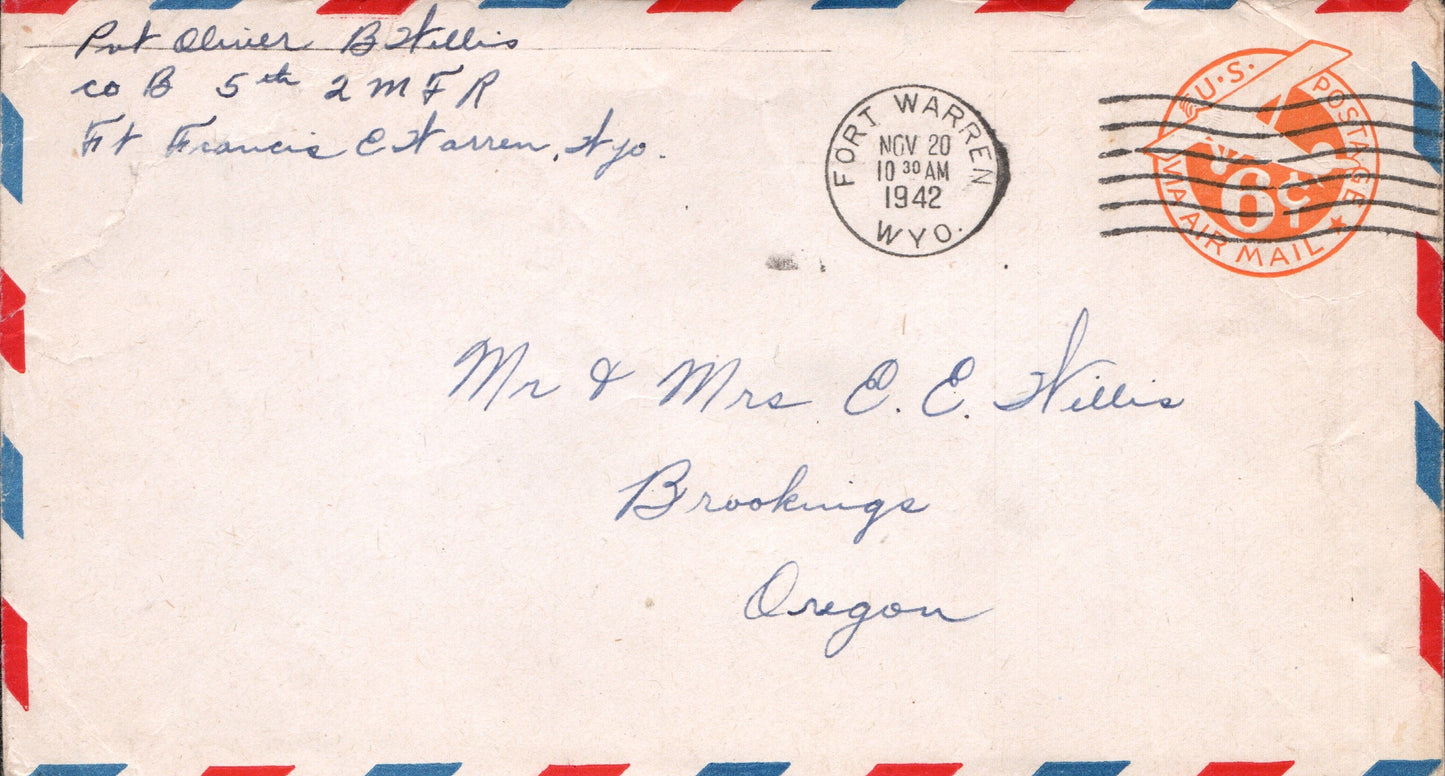 Pvt Oliver B Willis
co B 5th 2 M F R
Ft Francis E Warren, Wyo.
FORT WARREN
NOV 20
10 30 AM
1942
WYO.
U.S. POSTAGE
6¢
VIA AIR MAIL
Mr & Mrs E. E. Willis
Brookings
Oregon